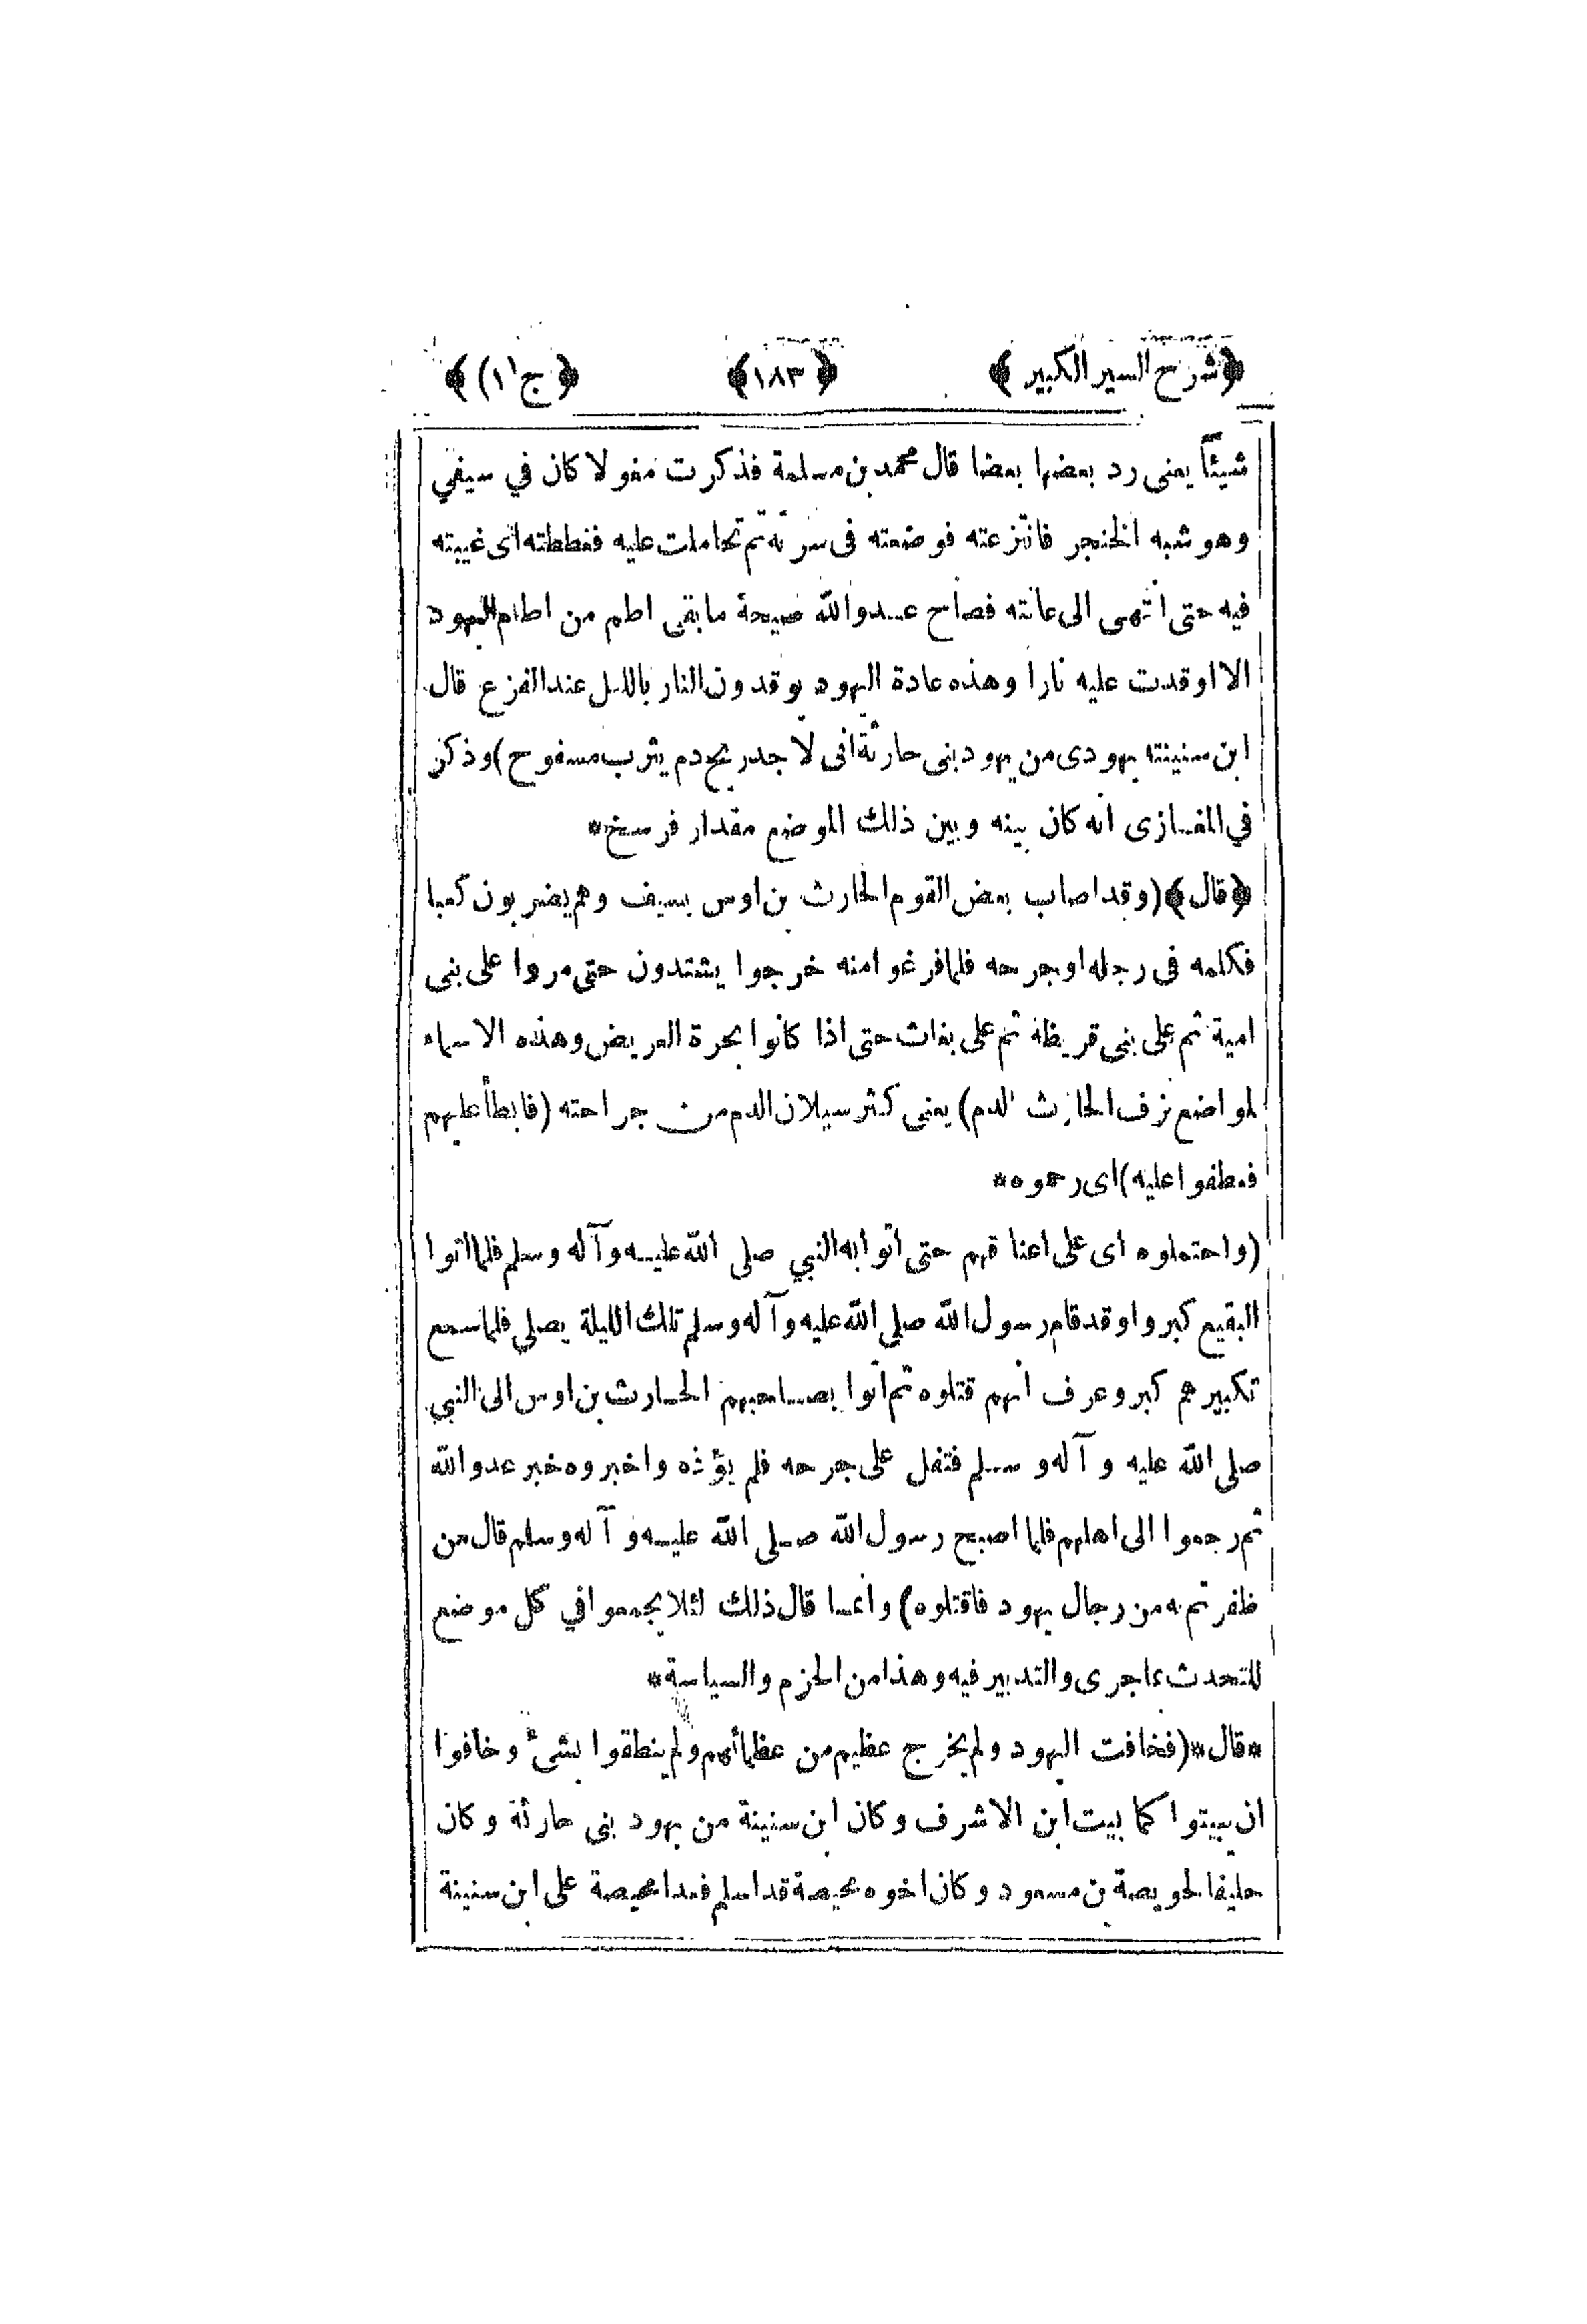 ﴿شرح السير الكبير﴾ ﴿١٨٣﴾ ﴿ج (١)﴾
شيئاً يعنى رد بعضها بعضا قال محمد بن مسلمة فذكرت مغولا كان في سيفي
وهو شبه الخنجر فانتزعته فوضعته فى سرته ثم تحاملت عليه فغططته اى غيبته
فيه حتى انتهى الى عانته فصاح عدو الله صيحة ما بقى اطم من اطام اليهود
الا اوقدت عليه نارا وهذه عادة اليهود يوقدون النار بالليل عند الفزع قال
ابن سنينته يهودى من يهود بنى حارثة انى لا جد ريح دم يثرب مسفوح) وذكر
في المغازى انه كان بينه وبين ذلك الموضع مقدار فرسخ*
﴿قال﴾ (وقد اصاب بعض القوم الحارث بن اوس بسيف وهم يضربون كعبا
فكلمه فى رجله او جرحه فلما فرغوا منه خرجوا يشتدون حتى مروا على بنى
امية ثم على بنى قريظة ثم على بغاث حتى اذا كانوا بحرة العريض وهذه الاسماء
لمواضع نزف الحارث الدم) يعنى كثر سيلان الدم من جراحته (فابطأ عليهم
فعطفوا عليه) اى رحموه*
(واحتملوه اى على اعناقهم حتى اتوا به النبي صلى الله عليه وآله وسلم فلما اتوا
البقيع كبروا وقد قام رسول الله صلى الله عليه وآله وسلم تلك الليلة يصلي فلما سمع
تكبيرهم كبر وعرف انهم قتلوه ثم اتوا بصاحبهم الحارث بن اوس الى النبي
صلى الله عليه وآله وسلم فتفل على جرحه فلم يؤذه واخبروه خبر عدو الله
ثم رجعوا الى اهلهم فلما اصبح رسول الله صلى الله عليه وآله وسلم قال من
ظفرتم به من رجال يهود فاقتلوه) وانما قال ذلك لئلا يجمعوا في كل موضع
للتحدث بما جرى والتدبير فيه وهذا من الحزم والسياسة*
*قال* (فخافت اليهود ولم يخرج عظيم من عظمائهم ولم ينطقوا بشئ وخافوا
ان يبيتوا كما بيت ابن الاشرف وكان ابن سنينة من يهود بنى حارثة وكان
حليفا لحويصة بن مسعود وكان اخوه محيصة قد اسلم فغدا محيصة على ابن سنينة